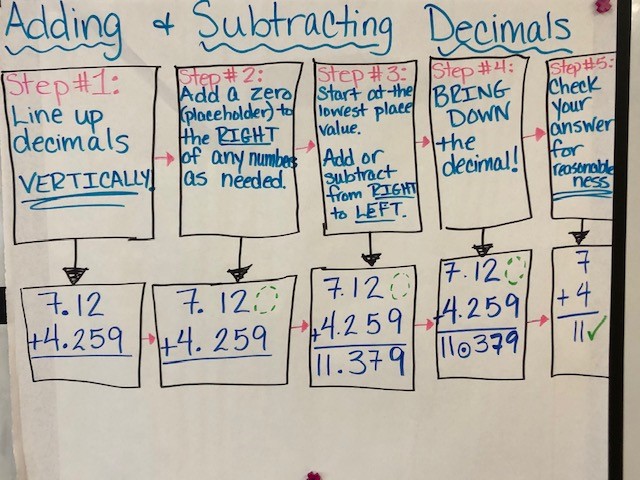 Adding & Subtracting Decimals
Step #1:
Line up
decimals
VERTICALLY.
Step #2:
Add a zero
(placeholder) to
the RIGHT
of any numbers
as needed.
Step #3:
Start at the
lowest place
value.
Add or
subtract
from RIGHT
to LEFT.
Step #4:
BRING
DOWN
the
decimal!
Step #5:
Check
your
answer
for
reasonable
ness
7.12
+4.259
7.120
+4.259
7.120
+4.259
11.379
7.120
+4.259
11.379
7
+4
11✓